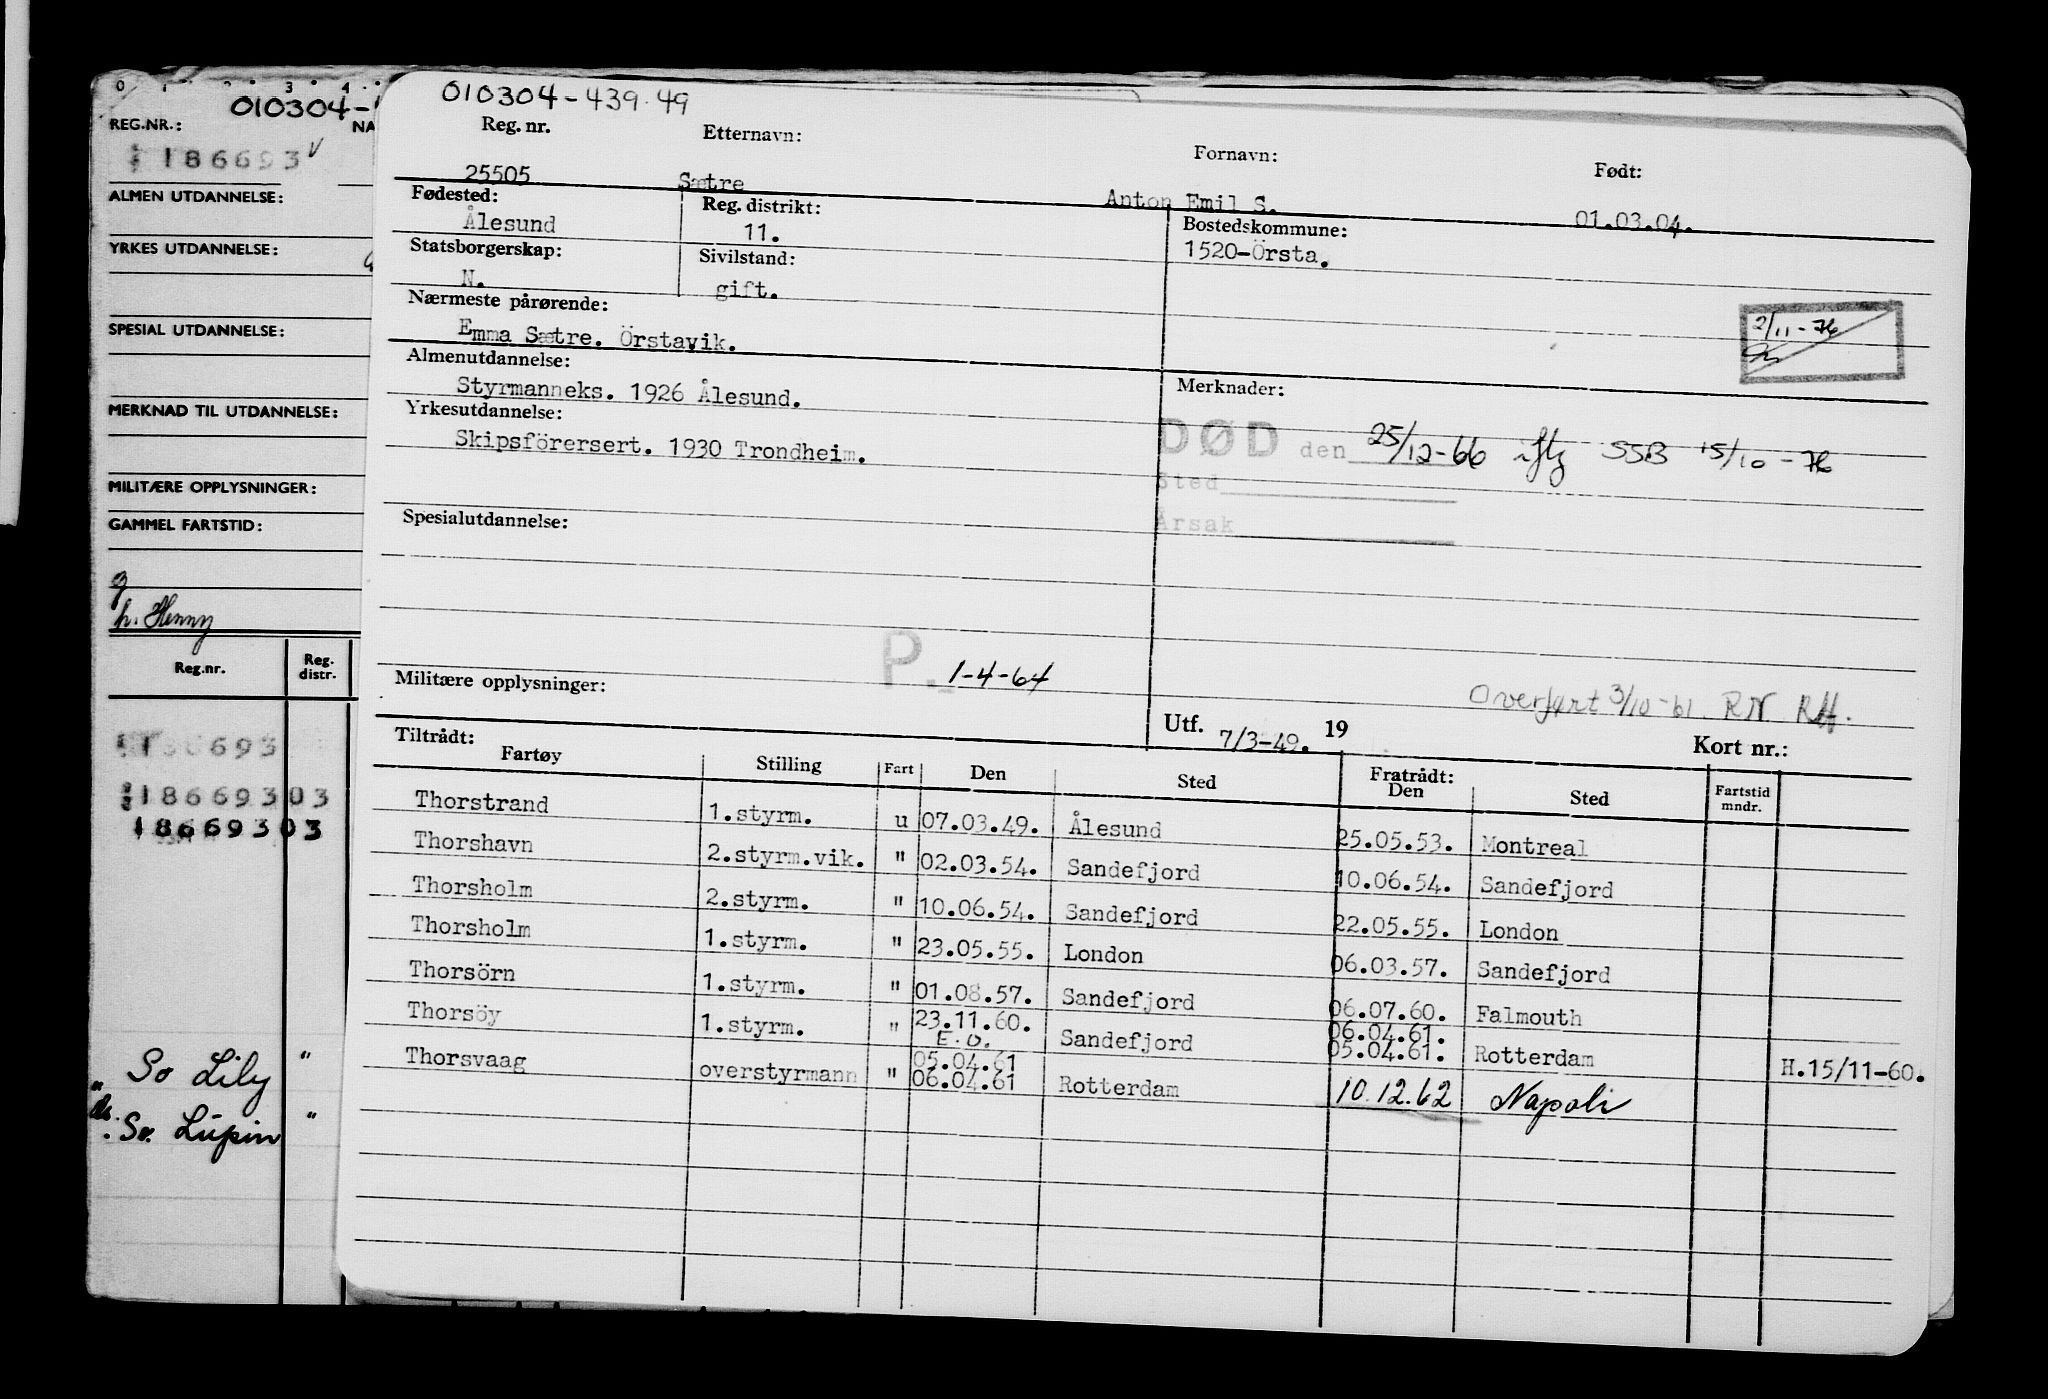 0 1 2 3 4
010304-
REG.NR.:
NA
186693
ALMEN UTDANNELSE:
YRKES UTDANNELSE:
SPESIAL UTDANNELSE:
MERKNAD TIL UTDANNELSE:
MILITÆRE OPPLYSNINGER:
GAMMEL FARTSTID:
h. Henny
Reg.nr. Reg. distr.
186693
18669303
18669303
" So Lily "
So. Lupin "
010304-439.49
Reg. nr. Etternavn: Fornavn: Født:
25505 Sætre Anton Emil S. 01.03.04.
Fødested: Reg. distrikt: Bostedskommune:
Ålesund 11. 1520-Örsta.
Statsborgerskap: Sivilstand:
N. gift.
Nærmeste pårørende:
Emma Sætre. Örstavik.
2/11-76
Almenutdannelse: Merknader:
Styrmanneks. 1926 Ålesund.
Yrkesutdannelse:
Skipsförersert. 1930 Trondheim.
DØD den 25/12-66 iflg SSB 15/10-76
Sted
Årsak
Spesialutdannelse:
P. 1-4-64
Militære opplysninger:
Overført 3/10-61 RN RH.
Utf. 7/3-49. 19 Kort nr.:
Tiltrådt: Fratrådt:
Fartøy Stilling Fart Den Sted Den Sted Fartstid mndr.
Thorstrand 1.styrm. u 07.03.49. Ålesund 25.05.53. Montreal
Thorshavn 2.styrm.vik. " 02.03.54. Sandefjord 10.06.54. Sandefjord
Thorsholm 2.styrm. " 10.06.54. Sandefjord 22.05.55. London
Thorsholm 1.styrm. " 23.05.55. London 06.03.57. Sandefjord
Thorsörn 1.styrm. " 01.08.57. Sandefjord 06.07.60. Falmouth
Thorsöy 1.styrm. " 23.11.60. E.O. Sandefjord 06.04.61. 05.04.61. Rotterdam H.15/11-60.
Thorsvaag overstyrmann " 05.04.61 06.04.61 Rotterdam 10.12.62 Napoli